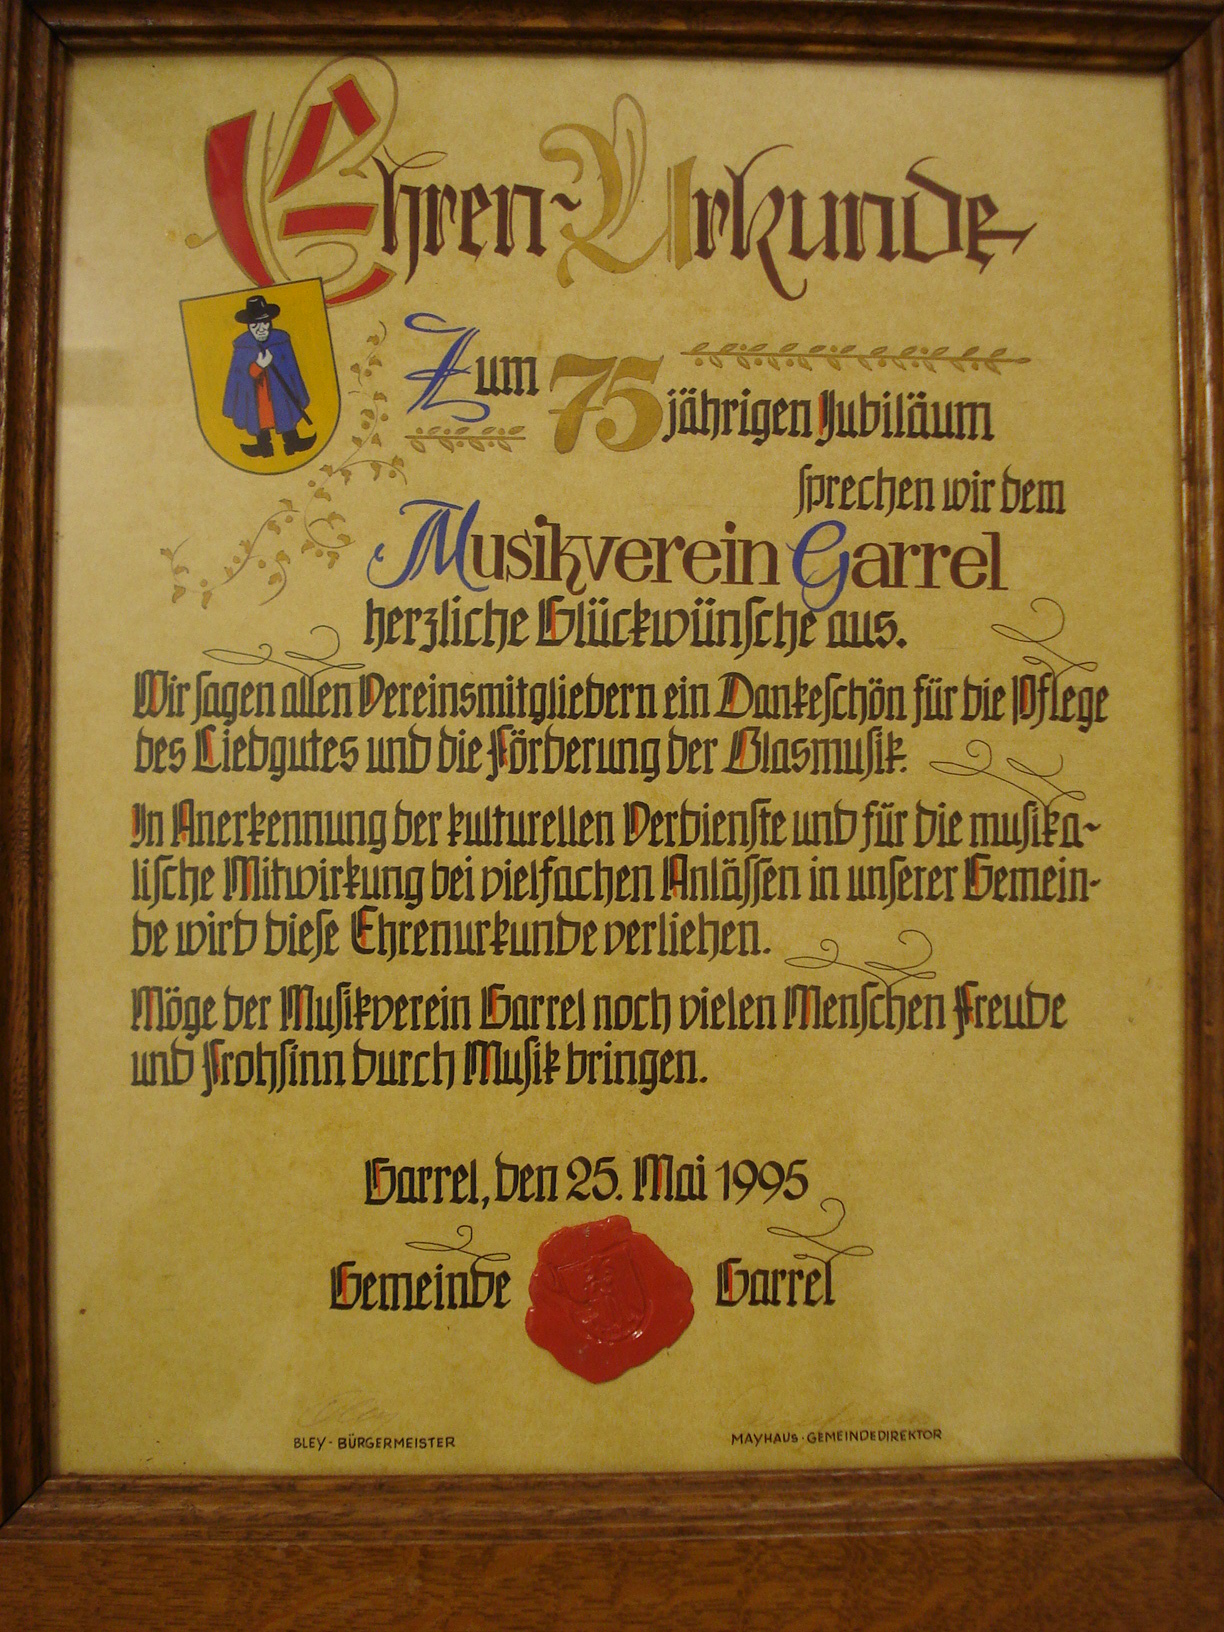 Ehren-Urkunde
Zum 75 jährigen Jubiläum
sprechen wir dem
Musikverein Garrel
herzliche Glückwünsche aus.
Wir sagen allen Vereinsmitgliedern ein Dankeschön für die Pflege
des Liedgutes und die Förderung der Blasmusik.
In Anerkennung der kulturellen Verdienste und für die musika-
lische Mitwirkung bei vielfachen Anlässen in unserer Gemein-
de wird diese Ehrenurkunde verliehen.
Möge der Musikverein Garrel noch vielen Menschen Freude
und Frohsinn durch Musik bringen.
Garrel, den 25. Mai 1995
Gemeinde Garrel
BLEY · BÜRGERMEISTER
MAYHAUS · GEMEINDEDIREKTOR